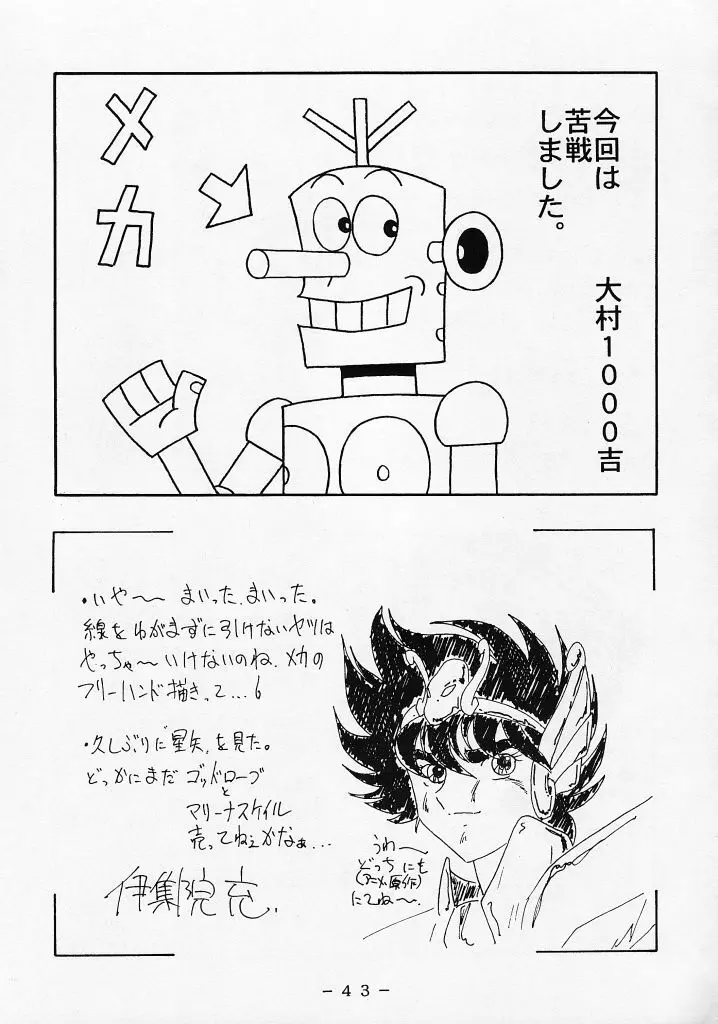 今回は
苦戦
しました。
大村1000吉
メカ
・いやー〜 まいった、まいった。
線をゆがまずに引けないヤツは
やっちゃ〜いけないのね、メカの
フリーハンド描きって…6
・久しぶりに"星矢"を見た。
どっかにまだ ゴッドローブ
と
マリーナスケイル
売ってねぇかなぁ...
伊集院充.
うわ〜
どっちにも
(アニメ・原作)
にてね〜.
-43-